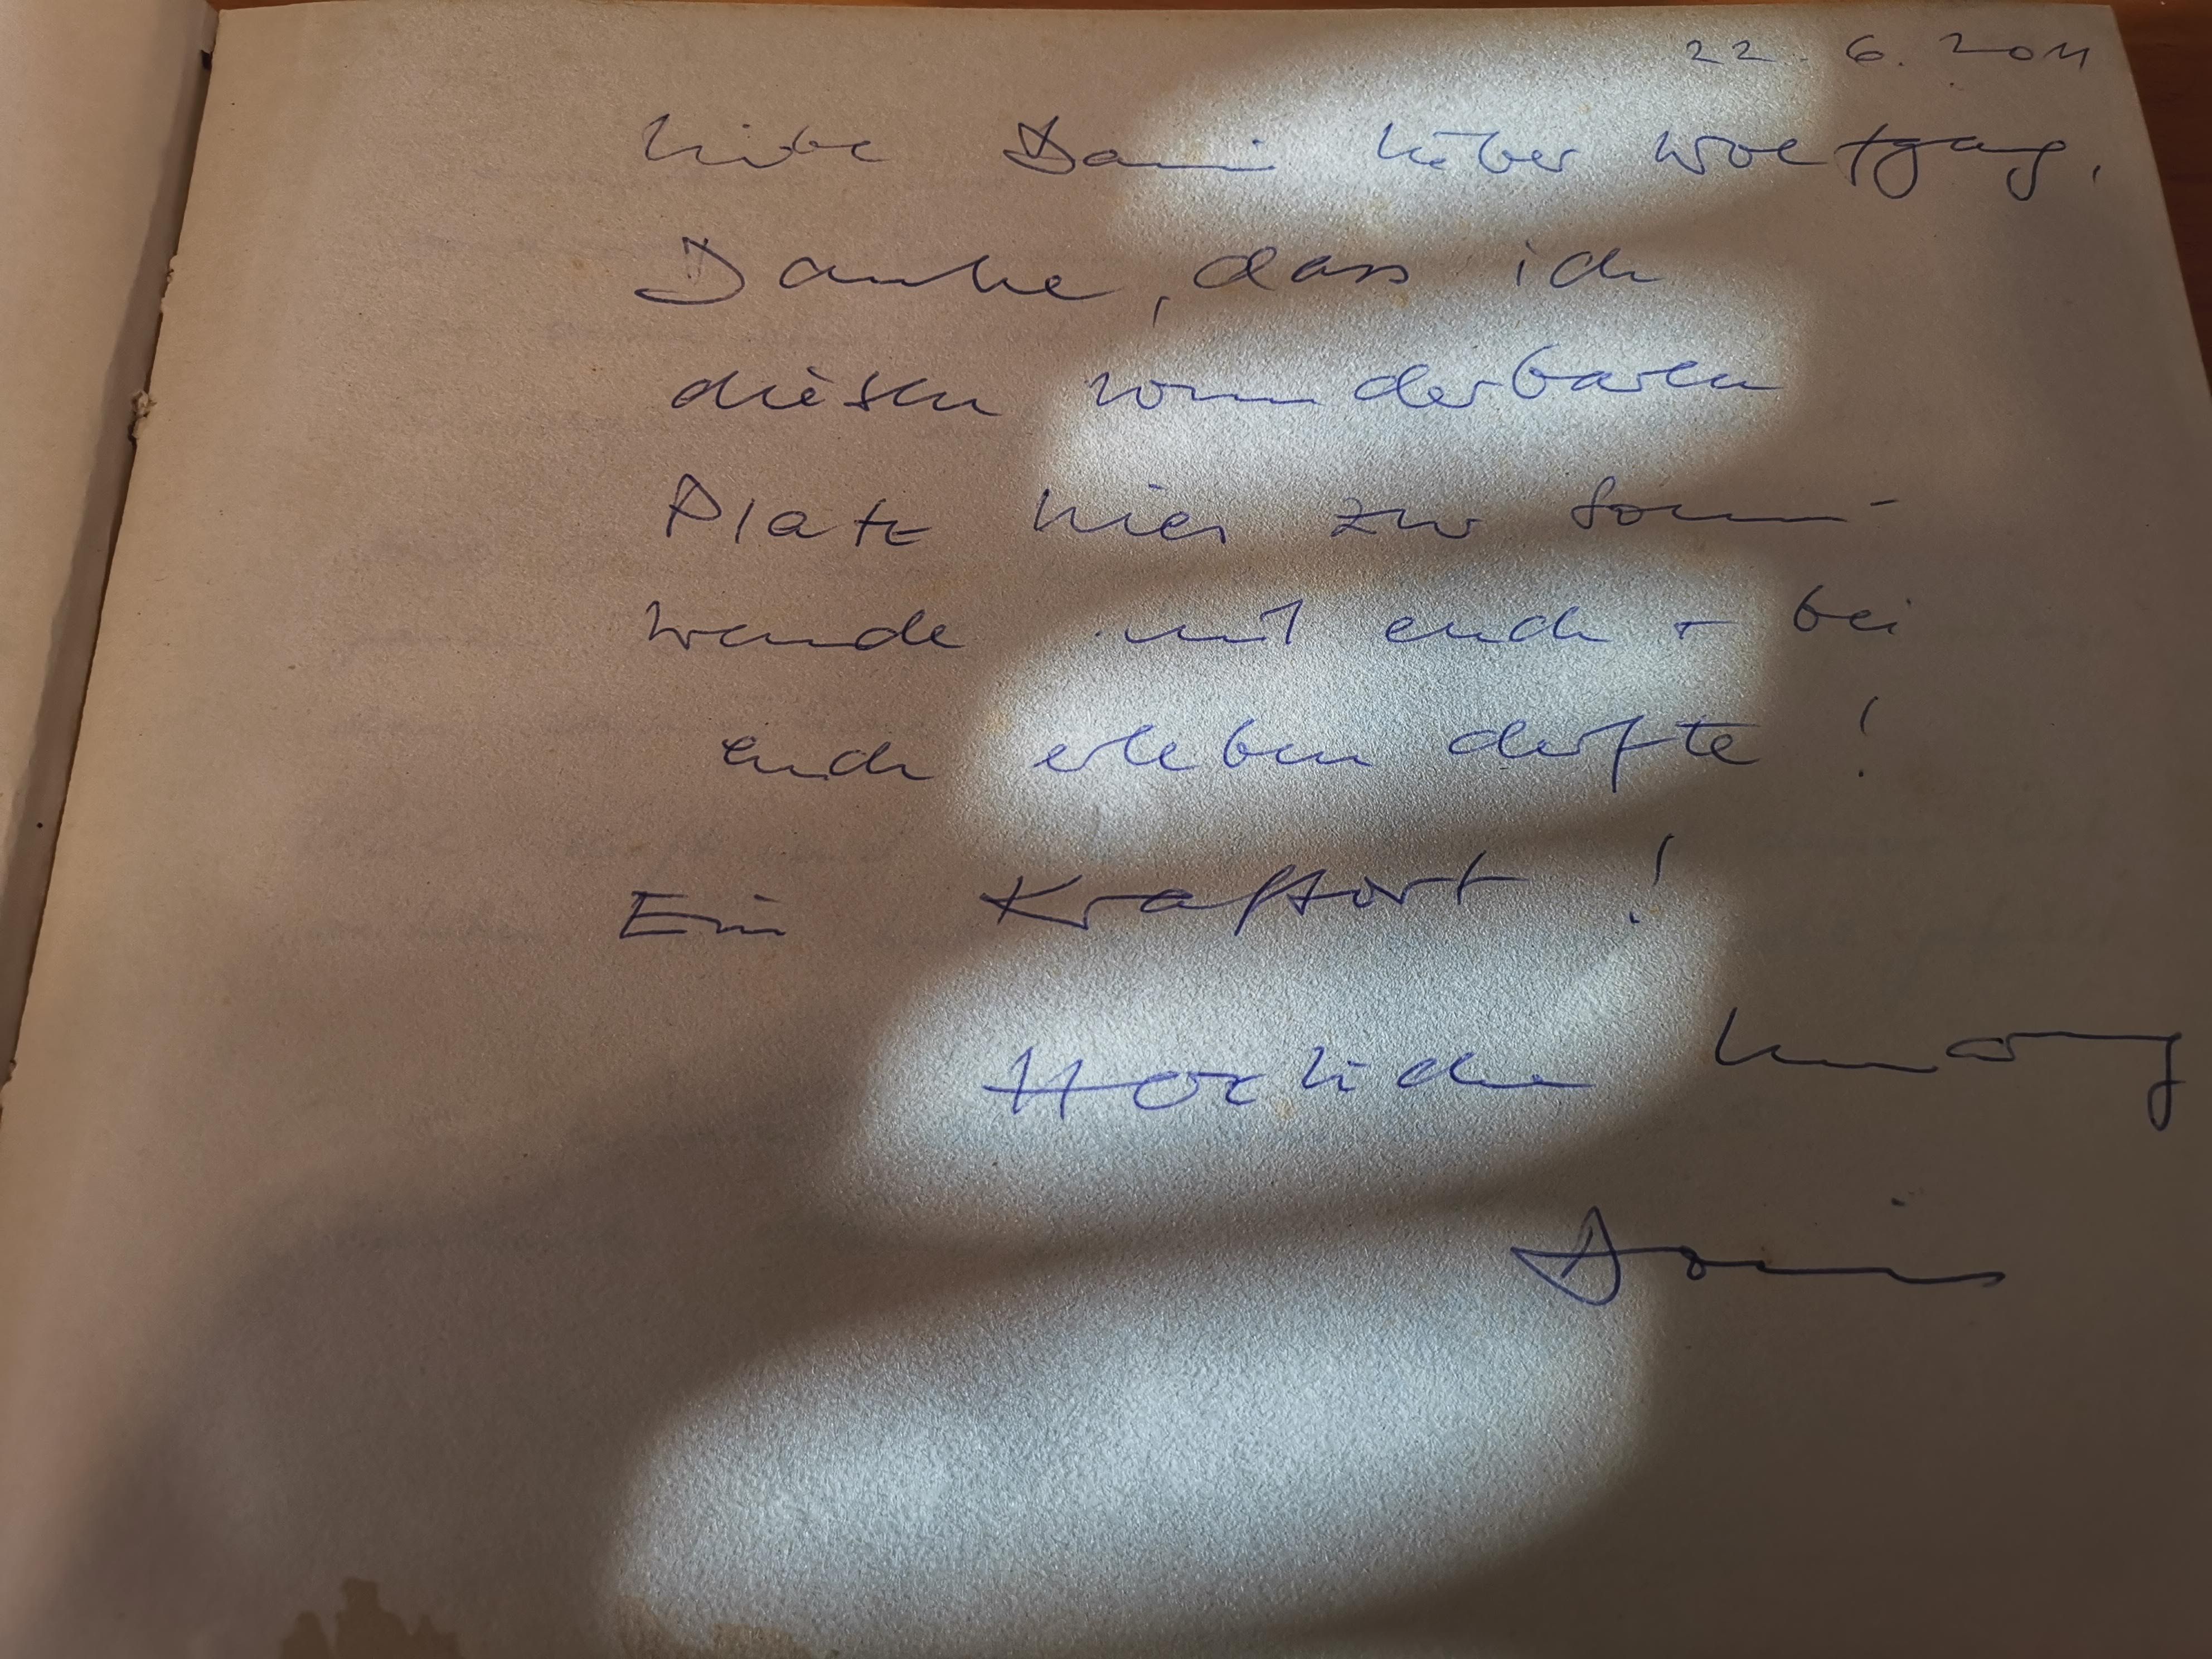 22. 6. 2011
Liebe Dani lieber Wolfgang,
Danke, dass ich
diesen wunderbaren
Platz hier zur Sonn-
wende mit euch + bei
euch erleben durfte!
Ein Kraftort!
Herzliche
Doris